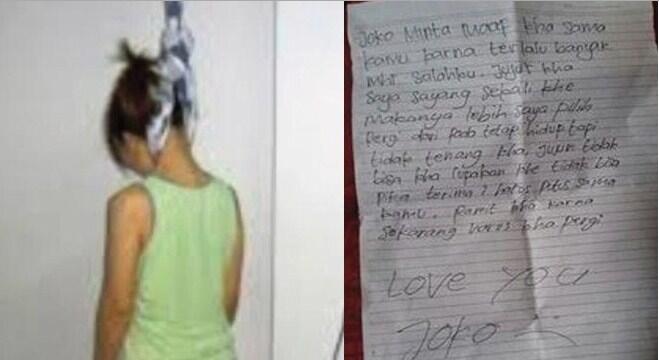 Joko Minta maaf kha sama
kamu karna terlalu banyak
salahku. Jujur kha
saya sayang sekali kha
makanya lebih saya pilih
pergi dari pada tetap hidup tapi
tidak tenang kha. Jujur tidak
bisa kha lupakan kha tidak bisa
terima harus putus sama
kamu. Pamit kha karna
sekarang harus kha pergi
LOVE YOU
Joko